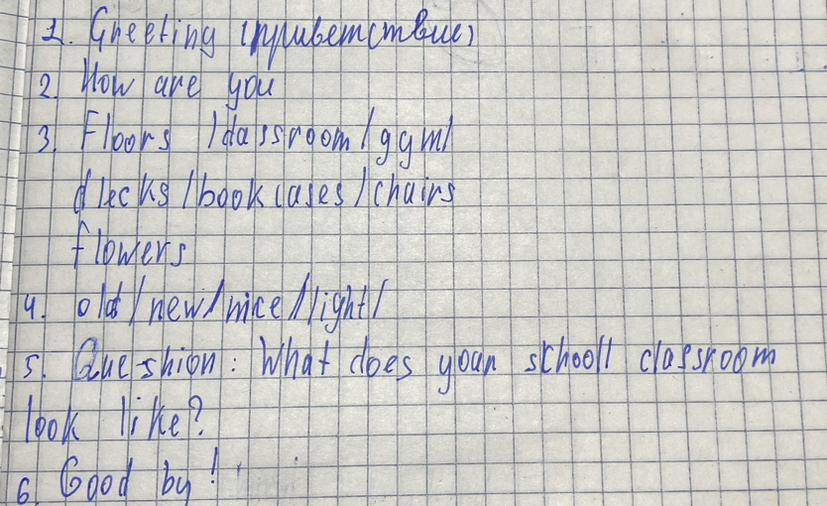 1. Greeting (приветствие)
2. How are you
3. Floors /classroom/gym/
decks/bookcases/chairs
flowers
4. old/new/nice/light/
5. Queshion: What does your schooll classroom
look like?
6. Good by!